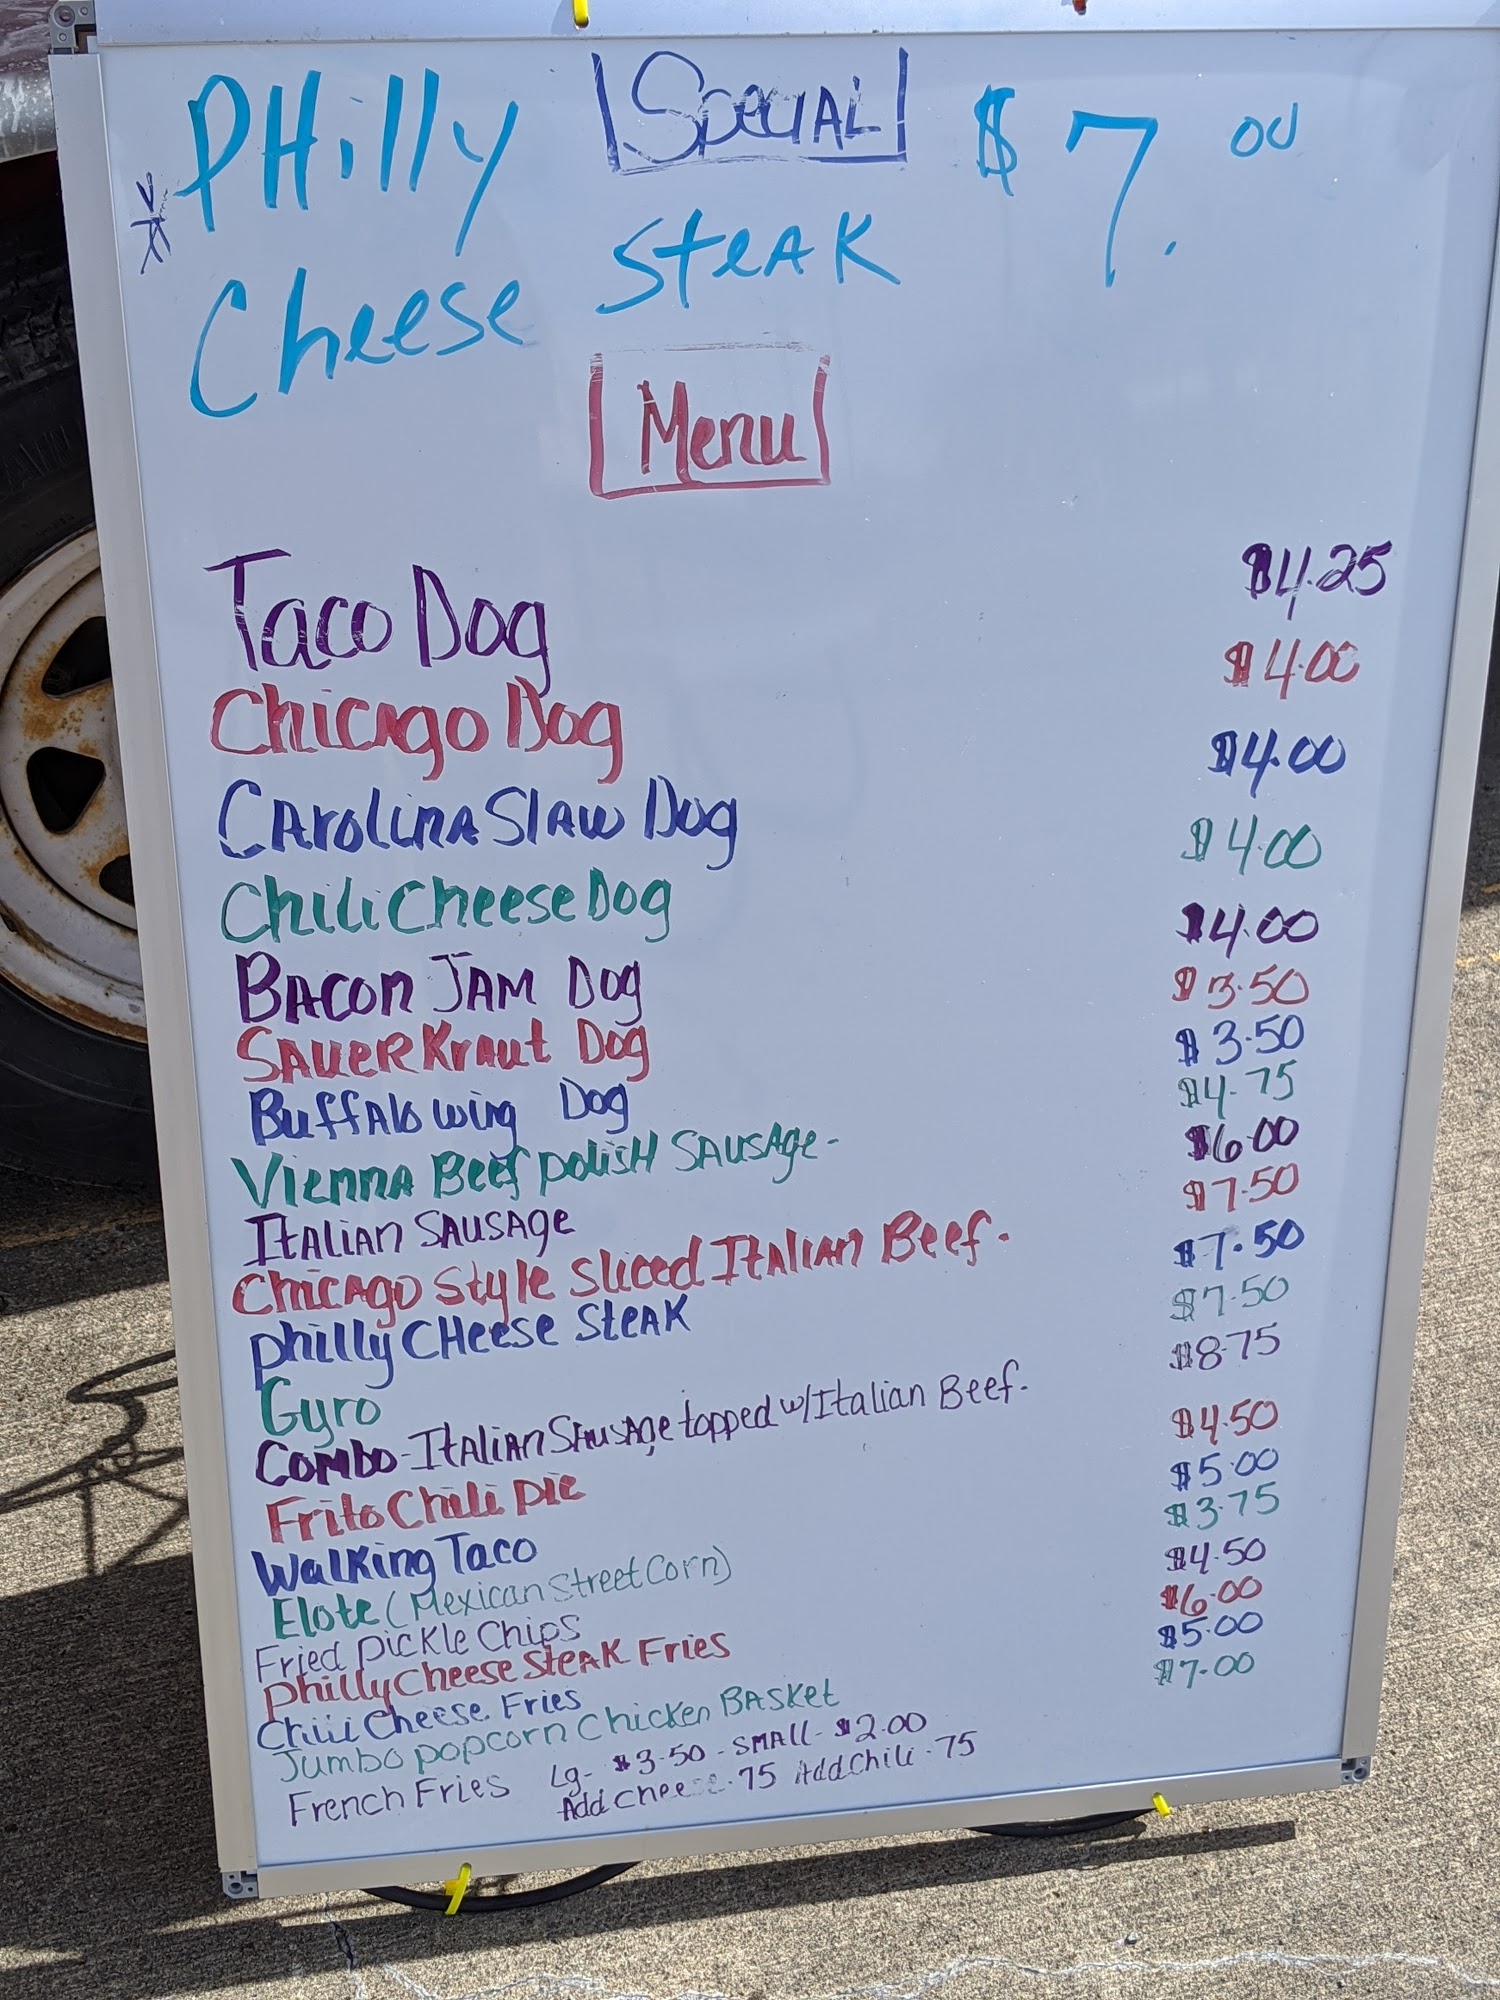 Special
PHilly $7.00
Cheese Steak
Menu
Taco Dog $4.25
Chicago Dog $4.00
Carolina Slaw Dog $4.00
Chili Cheese Dog $4.00
Bacon Jam Dog $4.00
SauerKraut Dog $3.50
Buffalo wing Dog $3.50
Vienna Beef polish Sausage- $4.75
Italian Sausage $6.00
Chicago Style Sliced Italian Beef. $7.50
philly CHeese Steak $7.50
Gyro $7.50
Combo-Italian Sausage topped w/Italian Beef. $8.75
Frito Chili pie $4.50
Walking Taco $5.00
Elote (Mexican Street Corn) $3.75
Fried pickle Chips $4.50
philly Cheese Steak Fries $6.00
Chili Cheese Fries $5.00
Jumbo popcorn Chicken Basket $7.00
French Fries Lg- $3.50 - Small- $2.00
Add cheese .75 Add Chili .75